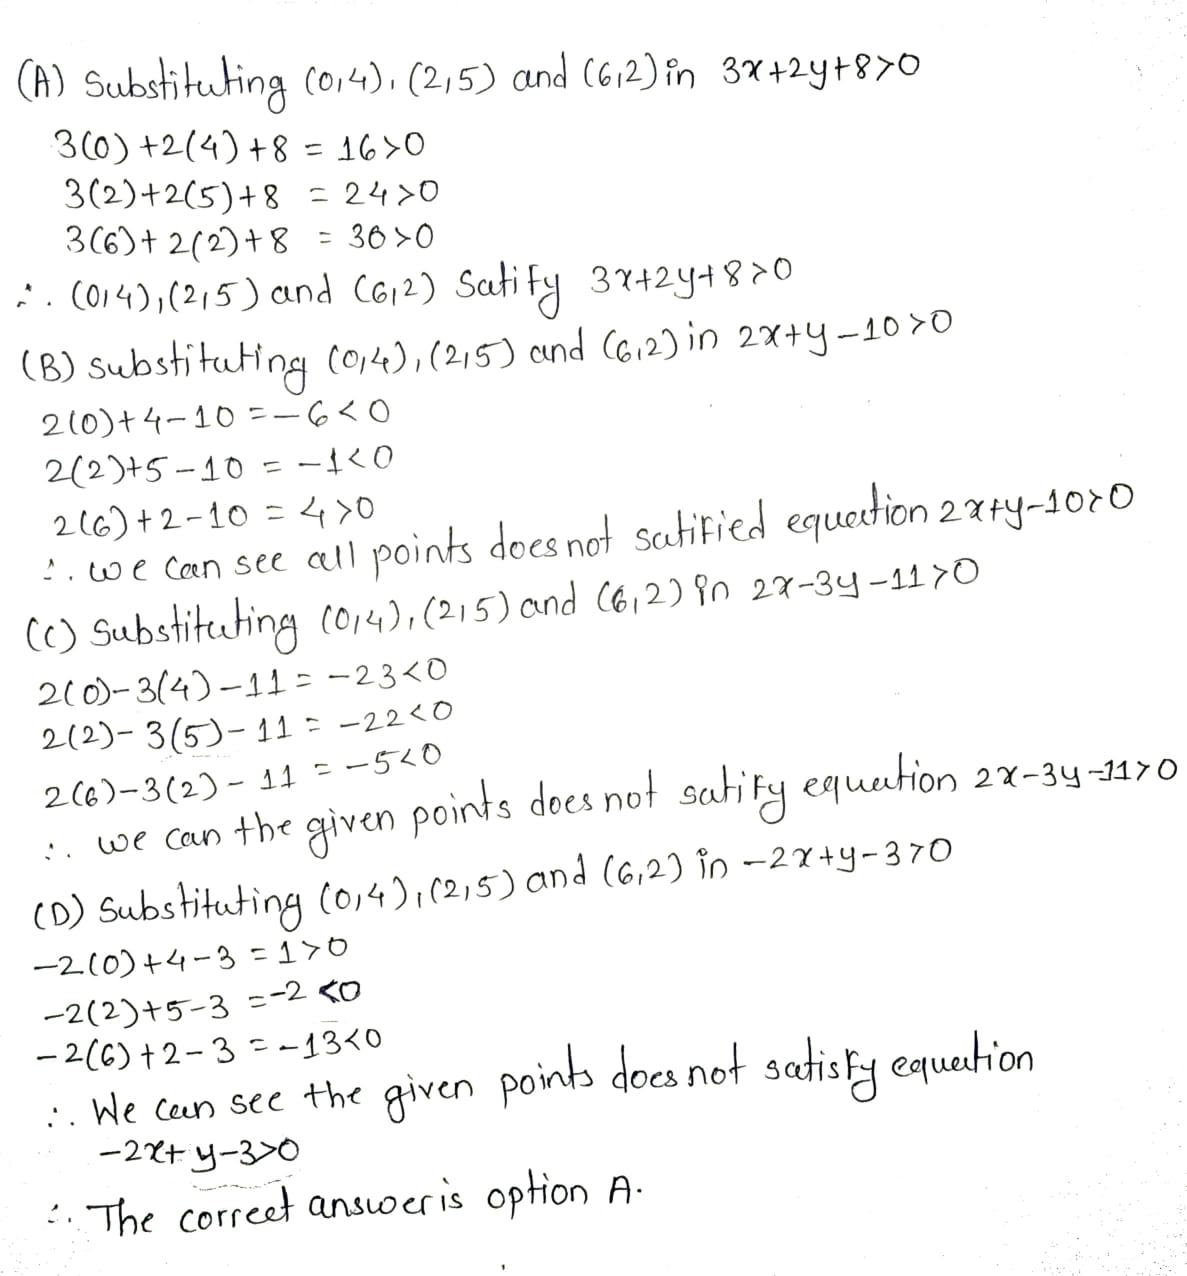 (A) Substituting (0,4), (2,5) and (6,2) in 3x+2y+8>0
3(0)+2(4)+8 = 16>0
3(2)+2(5)+8 = 24>0
3(6)+2(2)+8 = 30>0
∴ (0,4),(2,5) and (6,2) Satify 3x+2y+8>0
(B) substituting (0,4), (2,5) and (6,2) in 2x+y-10>0
2(0)+4-10 = -6<0
2(2)+5-10 = -1<0
2(6)+2-10 = 4>0
∴ we can see all points does not satified equation 2x+y-10>0
(C) Substituting (0,4), (2,5) and (6,2) in 2x-3y-11>0
2(0)-3(4)-11 = -23<0
2(2)-3(5)-11 = -22<0
2(6)-3(2)-11 = -5<0
∴ we can the given points does not satify equation 2x-3y-11>0
(D) Substituting (0,4), (2,5) and (6,2) in -2x+y-3>0
-2(0)+4-3 = 1>0
-2(2)+5-3 = -2<0
-2(6)+2-3 = -13<0
∴ We can see the given points does not satisfy equation
-2x+y-3>0
∴ The correct answer is option A.